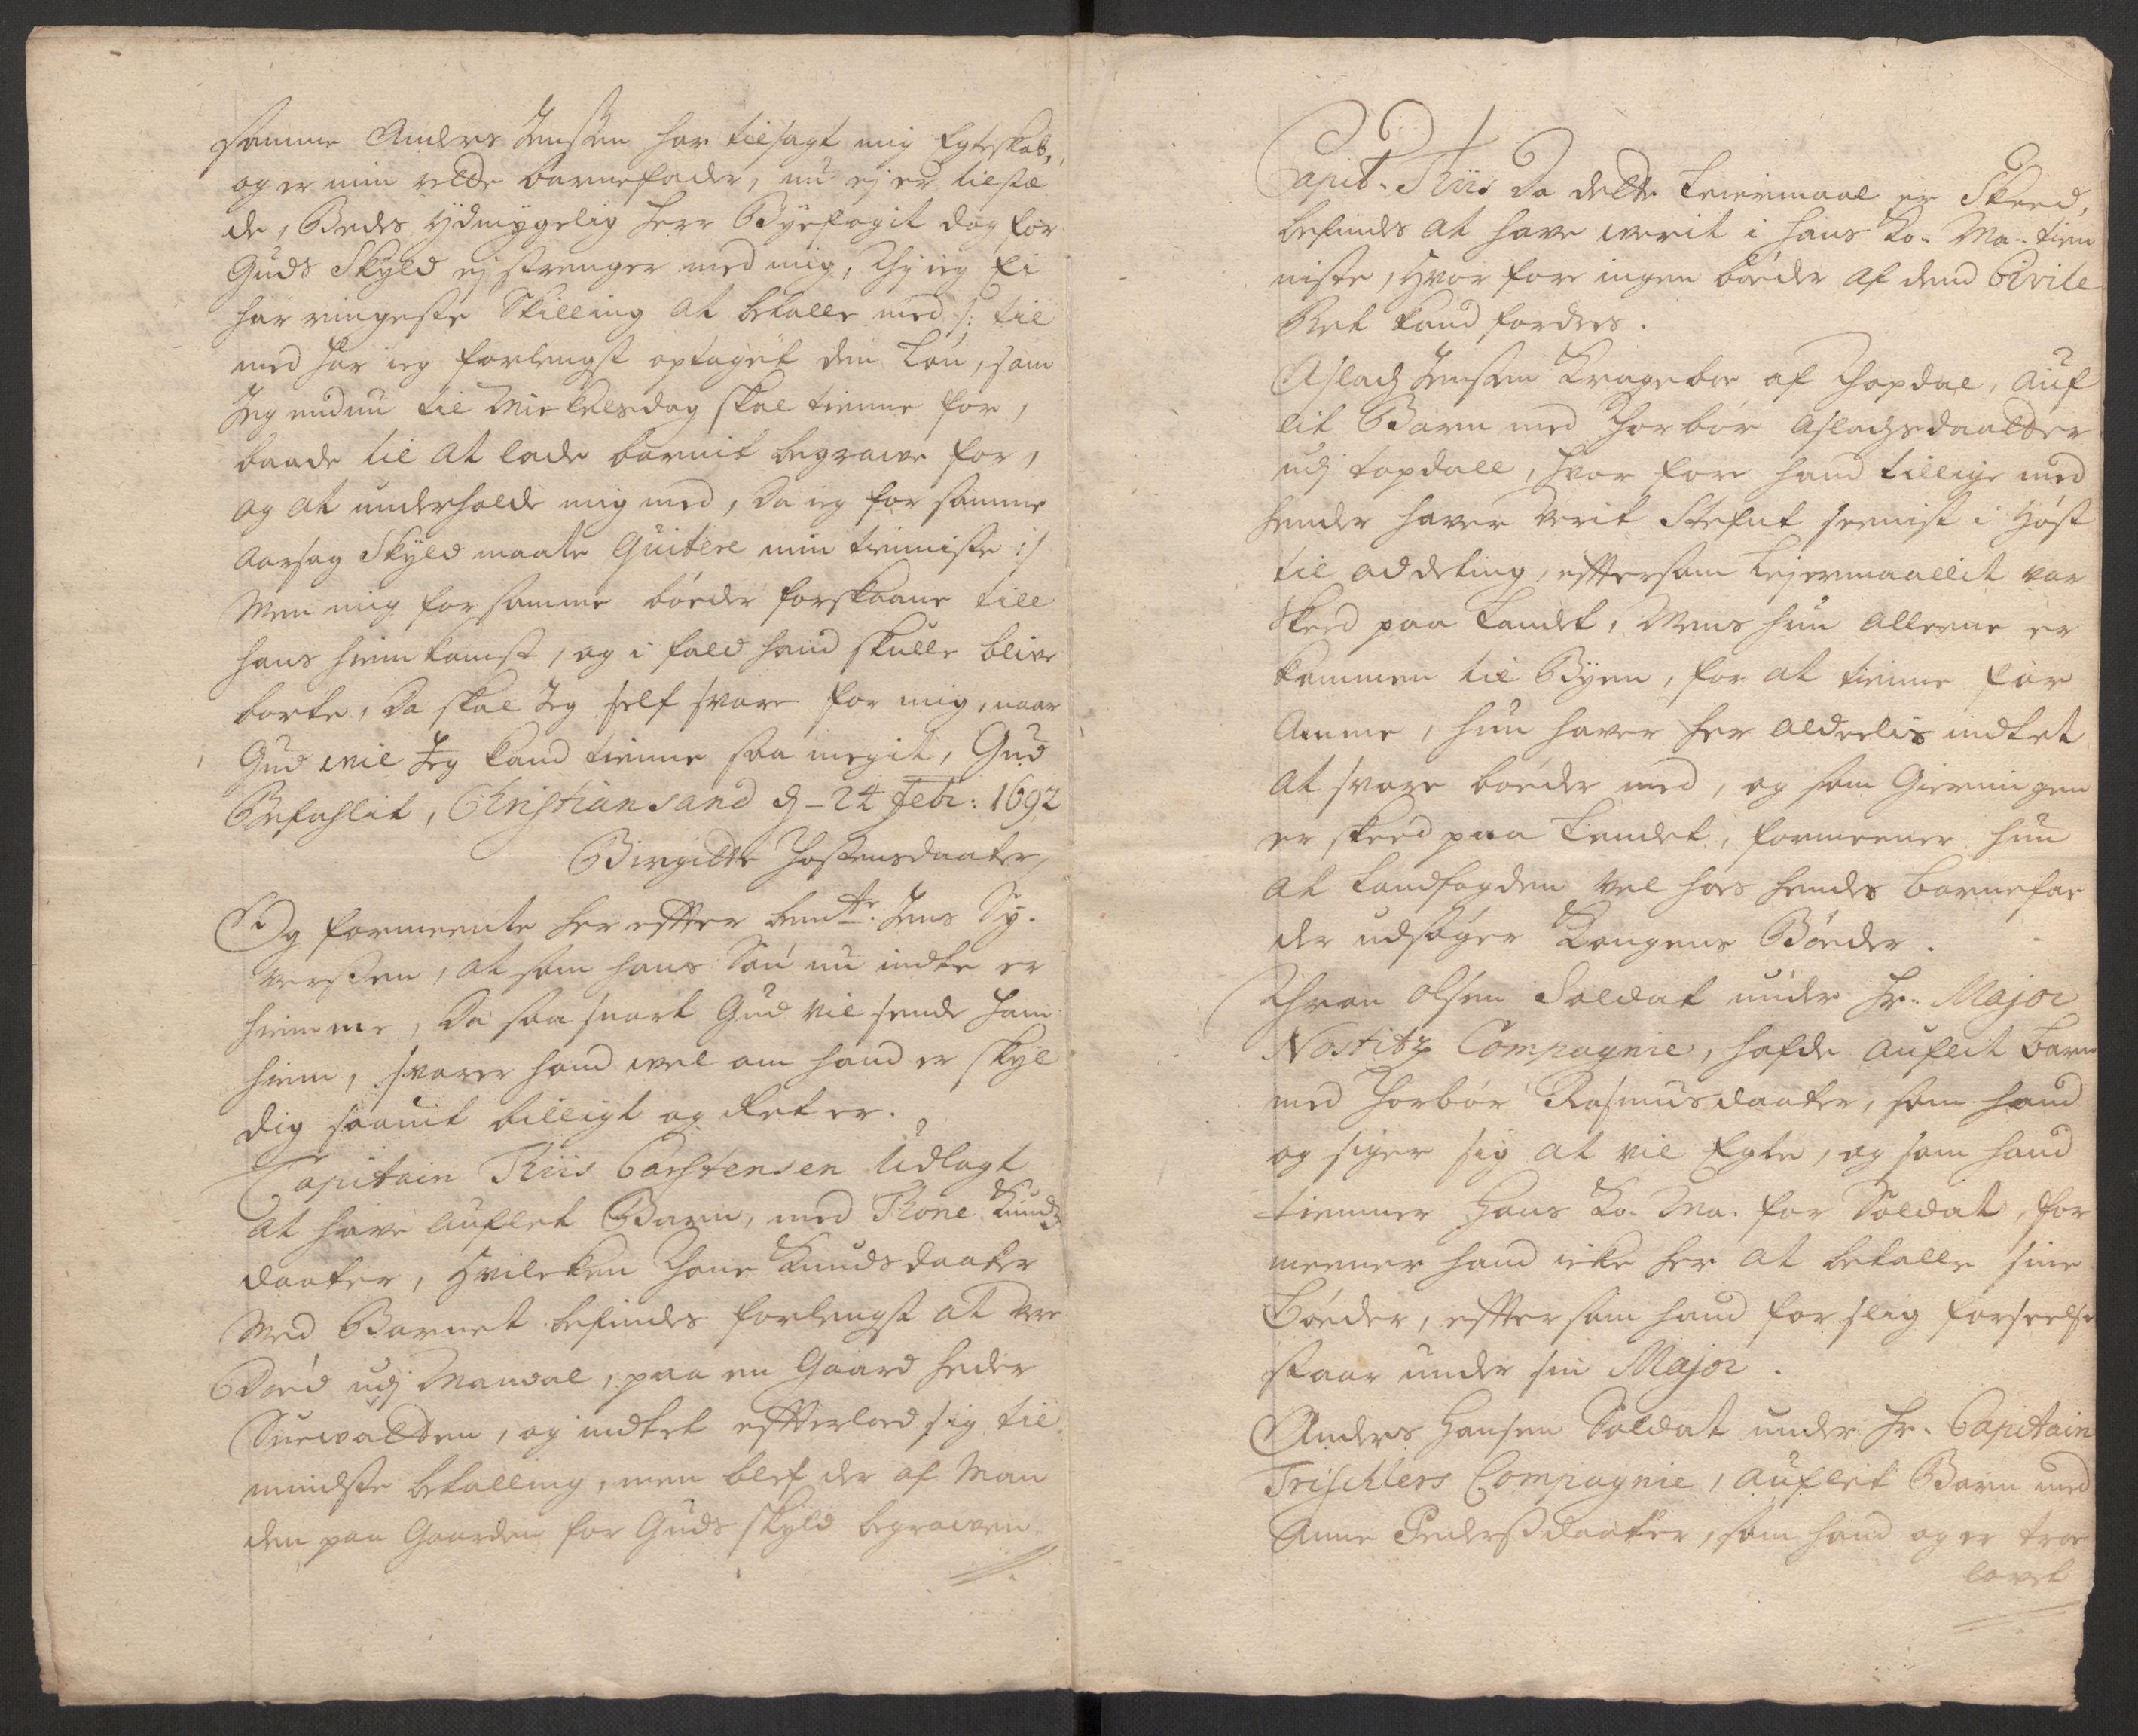 samme Anders Jenssen har tilsagt mig Egteskab,
og er min rette barnefader, nu ej er tilstæ
de, Bedes ydmygelig herr Byefogit dog for
Guds Skyld ej strenger med mig, Thj ieg Ei
har ringeste Skilling at betalle med /: til
med har ieg forlengst optaget den Løn, som
Jeg endnu til Mickelsdag skal tienne for,
baade til at lade barnit begrawe for,
og at underholde mig med, da ieg for samme
aarsag Skyld maatte Quitere min tienniste :/
Men mig for samme bøeder forskaane till
hans hiemkomst, og i fald hand skulle blive
borte, da skal Jeg self svare for mig, naar
Gud wil Jeg kand tienne saa megit, Gud
Befahlit, Christiansand d. 24 Febr: 1692
Birgitte Tostensdaater,
Og formeente her effter bemte. Jens Sy-
versen, at som hans Søn nu indte er
hiemme, da saa snart Gud vil sende ham
hiem, svarer hand wel om hand er skyl
dig saavit billigt og Ret er.
Capitain Thiis Carstensen Udlagt
at have auflet Barn, med Thone Knuds
daater, Hvilcken Thone Knudsdaater
Med Barnet befindes forlengst at vere
Død udj Mandal, paa en Gaard heder
, og indtet effterlod sig til
mindste betalling, men blef der af Man
den paa Gaarden for Guds skyld begrawen
Capit. Thiis da dette Leiermaal er Skeed,
befindes at have werit i Hans Ko. Ma. tien
niste, Hvorfore ingen bøeder af dend Civile
Ret kand fordres.
Aslach Jenssen Kragebøe af Thopdal, auf
lit Barn med Thorbør Aslachsdaatter
udj topdall, hvor fore hand tillige med
hender haver verit Stefnt seenist i Høst
til oddeting, effter som Leyermaallit var
Skeed paa Landet, Mens hun alleene er
kommen til Byen, for at tienne for
Amme, hun haver her aldeelis indtet
at svare bøeder med, og som Gierningen
er skeed paa Landet, formeener hun
at Landfogden vel hos hendes barnefar
der udsøger Kongens Bøeder.
Thron Olsen Soldat under Hr. Major
Nostitz Compagnie, hafde auflit barn
med Thorbør Rasmusdaater, som hand
og siger sig at vil Egte, og som hand
tienner Hans Ko. Ma. for Soldat, for
meener hand icke her at betalle sine
bøeder, effter som hand for slig forseelse
staar under sin Major.
Anders Hansen Soldat under Hr. Capitain
Trischlers Compagnie, auflit Barn med
Anne Pedersdaater, som hand og er troe
lovet